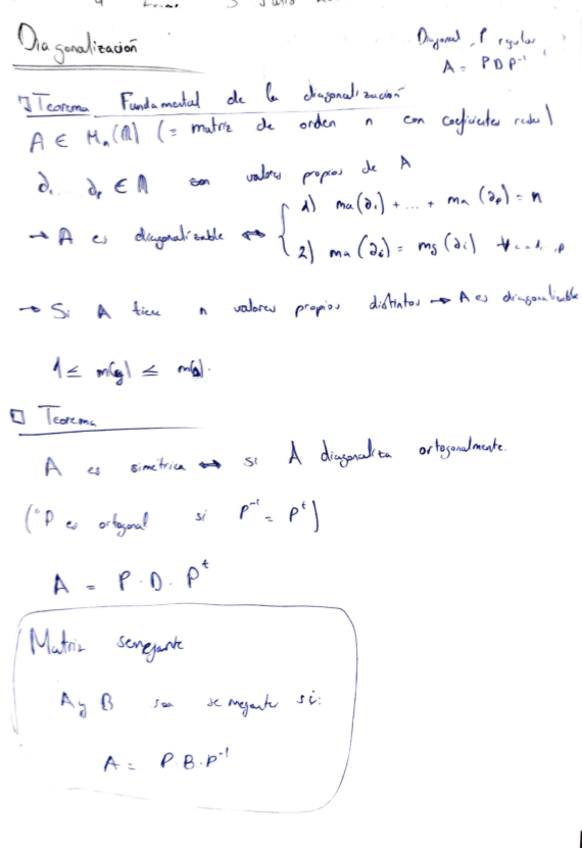 Diagonalización
Diagonal, P regular
A = PDP⁻¹
Teorema Fundamental de la diagonalización
A ∈ Mₙ(R) (= matriz de orden n con coeficientes reales)
∂₁ ... ∂p ∈ R son valores propios de A
→ A es diagonalizable ↔ { 1) ma(∂₁) + ... + ma(∂p) = n
2) ma(∂i) = mg(∂i) ∀ i = 1, p
→ Si A tiene n valores propios distintos → A es diagonalizable
1 ≤ m(g) ≤ m(a).
Teorema
A es simétrica ↔ si A diagonaliza ortogonalmente.
("P es ortogonal si P⁻¹ = Pᵗ)
A = P · D · Pᵗ
Matriz semejante
A y B son semejantes si:
A = P·B·P⁻¹